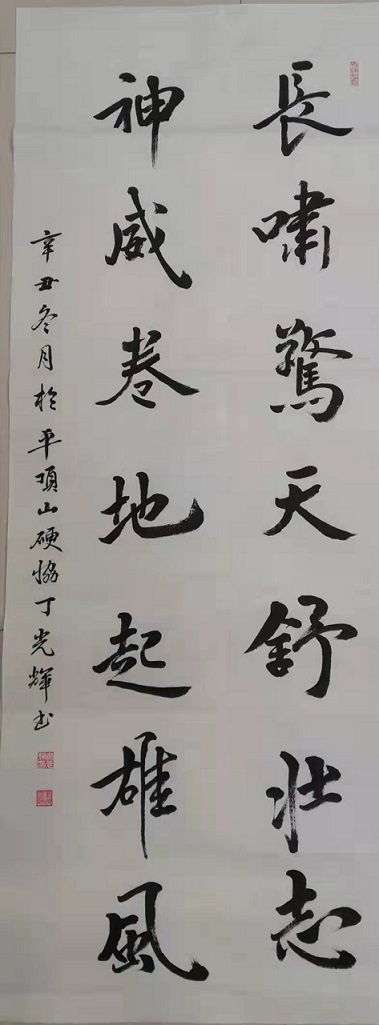 長嘯驚天舒壯志
神威卷地起雄風
辛丑冬月於平頂山硬協丁光輝书